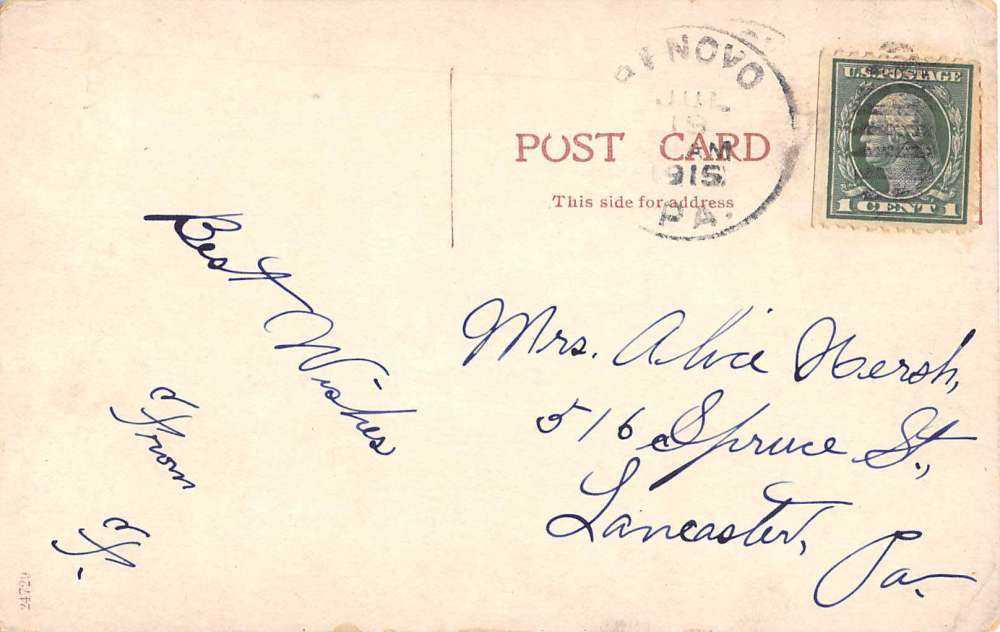 RENOVO
JUL
AM
1915
PA.
U.S. POSTAGE
1 CENT 1
POST CARD
This side for address
Best Wishes
From
F.
Mrs. Alice Hersh,
516 Spruce St.,
Lancaster,
Pa.
24729